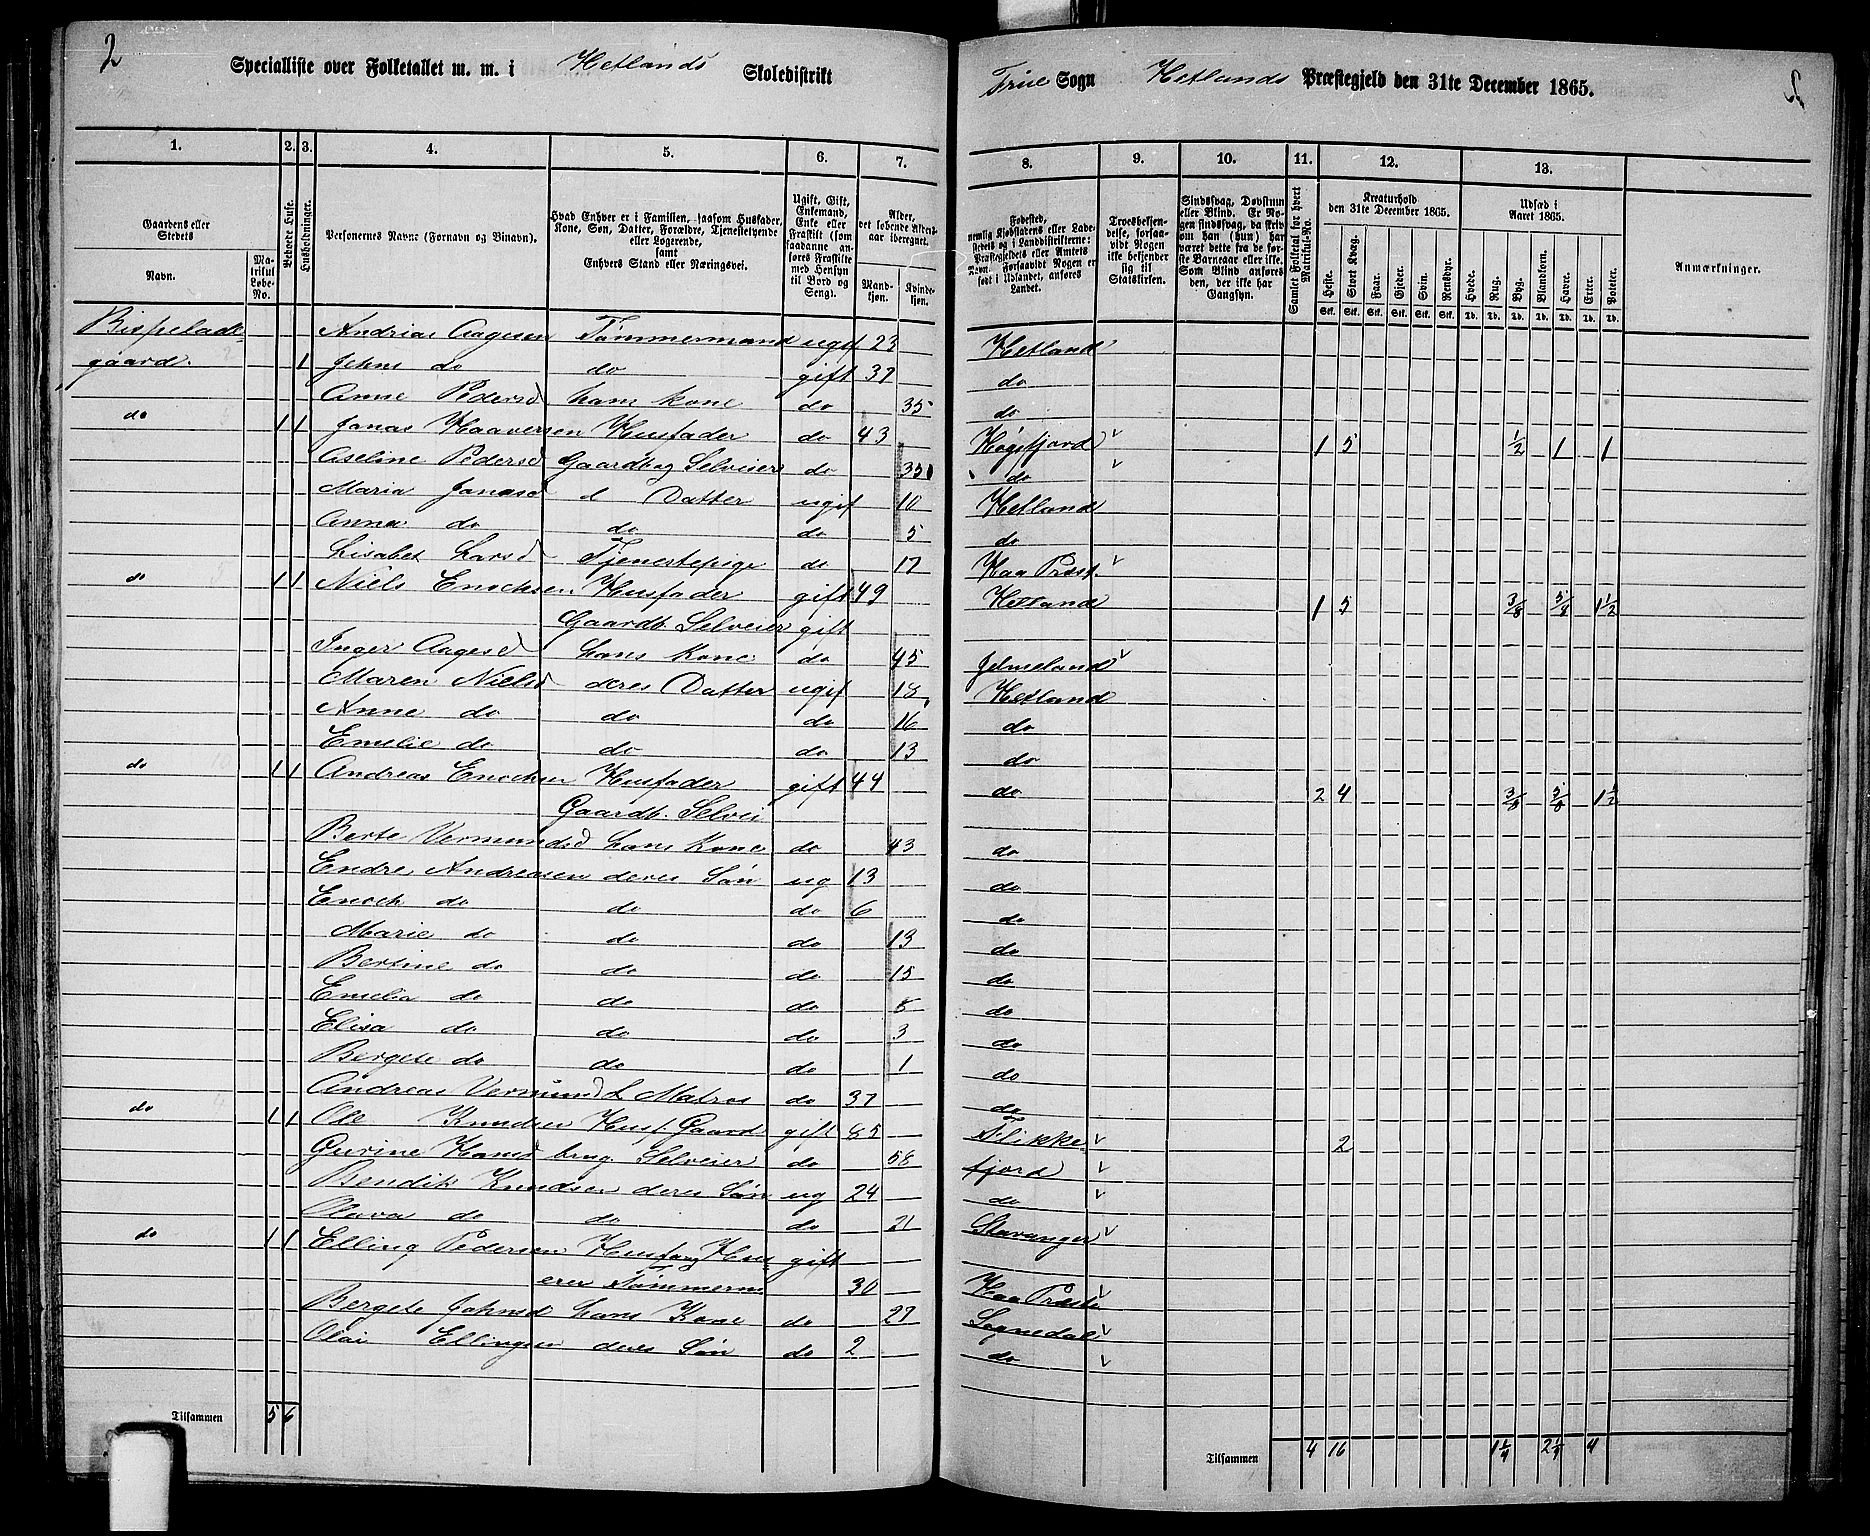 2
Specialliste over Folketallet m. m. i Hetlands Skoledistrikt
Frue Sogn Hetlands Præstegjeld den 31te December 1865.
1. 2. 3. 4. 5. 6. 7. 8. 9. 10. 11. 12. 13.
Gaardens eller Stedets
Navn. Matrikul Løbe-No.
Beboede Huse.
Husholdninger.
Personernes Navne (Fornavn og Tilnavn).
Hvad Enhver er i Familien, saasom Husfader, Kone, Søn, Datter, Forældre, Tjenestetyende eller Logerende, samt Enhvers Stand eller Næringsvei.
Ugift, Gift, Enkemand, Enke eller Fraskilt (som saadanne anføres Fraskilte med Hensyn til Bord og Seng).
Alder, det løbende Alders-aar iberegnet.
Mandkjøn. Kvindekjøn.
Fødested, nemlig Kjøbstadens eller Ladestedets og i Landdistrikterne: Præstegjeldets eller Amtets Navn. Forsaavidt Nogen er født i Udlandet, anføres Landet.
Troesbekjendelse, forsaavidt Nogen ikke bekjender sig til Statskirken.
Sindssvag, Døvstum eller Blind. Er Nogen sindssvag, da skrives om han (hun) har været dette fra de første Barneaar eller ikke. Som Blind anføres den, der ikke har Gangsyn.
Samlet Folketal for hvert Matrikul-No.
Kreaturhold den 31te December 1865.
Heste. Stort Kvæg. Faar. Gjeder. Svin. Rensdyr.
Stk. Stk. Stk. Stk. Stk. Stk.
Udsæd i Aaret 1865.
Hvede. Rug. Byg. Blandkorn. Havre. Erter. Poteter.
Td. Td. Td. Td. Td. Td. Td.
Anmærkninger.
Andrias Aagesen Tømmermand ugif 23 Hetland
gaard. 1 Johns do do gift 37 do
Anne Pedersd hans kone do 35 do
do 1 1 Jonas Haaversen Husfader do 43 Høgsfjord 1 5 1/2 1 1
Aseline Pedersd Gaardb og Selveier do 35 do
Maria Jonasd d Datter ugif 10 Hetland
Anna do do do 5 do
Lisabet Larsd Tjenestepige do 17 Haa Præst.
do 1 1 Niels Enochsen Husfader gift 49 Hetland 1 5 3/8 5/8 1 1/2
Gaardb. Selveier gift
Inger Aagesd hans Kone do 45 Jelmeland
Maren Nielsd deres Datter ugif 18 Hetland
Anne do do do 16 do
Emelie do do do 13 do
do 1 1 Andreas Enochsen Husfader gift 44 do 2 4 3/8 5/8 1 1/2
Gaardb. Selvei
Berte Vermundsd hans Kone do 43 do
Endre Andreasen deres Søn ug 13 do
Enoch do do do 6 do
Marie do do do 13 do
Bertine do do do 15 do
Emelia do do do 8 do
Elisa do do do 3 do
Bergete do do do 1 do
Andreas Vermund L Matros do 37 do
do 1 1 Ole Knudsen Husf. Gaard gift 85 Flikke- 2
Gurine Hansd brug Selveier do 58 fjord
Bendik Knudsen deres Søn ug 24 do
Olava do do do 21 Stavanger
do 1 1 Elling Pedersen Husf og Hus gift
erer Tømmerm 30 Haa Præst
Bergete Johnsd hans Kone do 27 Sognedal
Olai Ellingsen deres Søn do 2 do
Tilsammen 5 6 Tilsammen 4 16 1 1/4 2 1/4 4